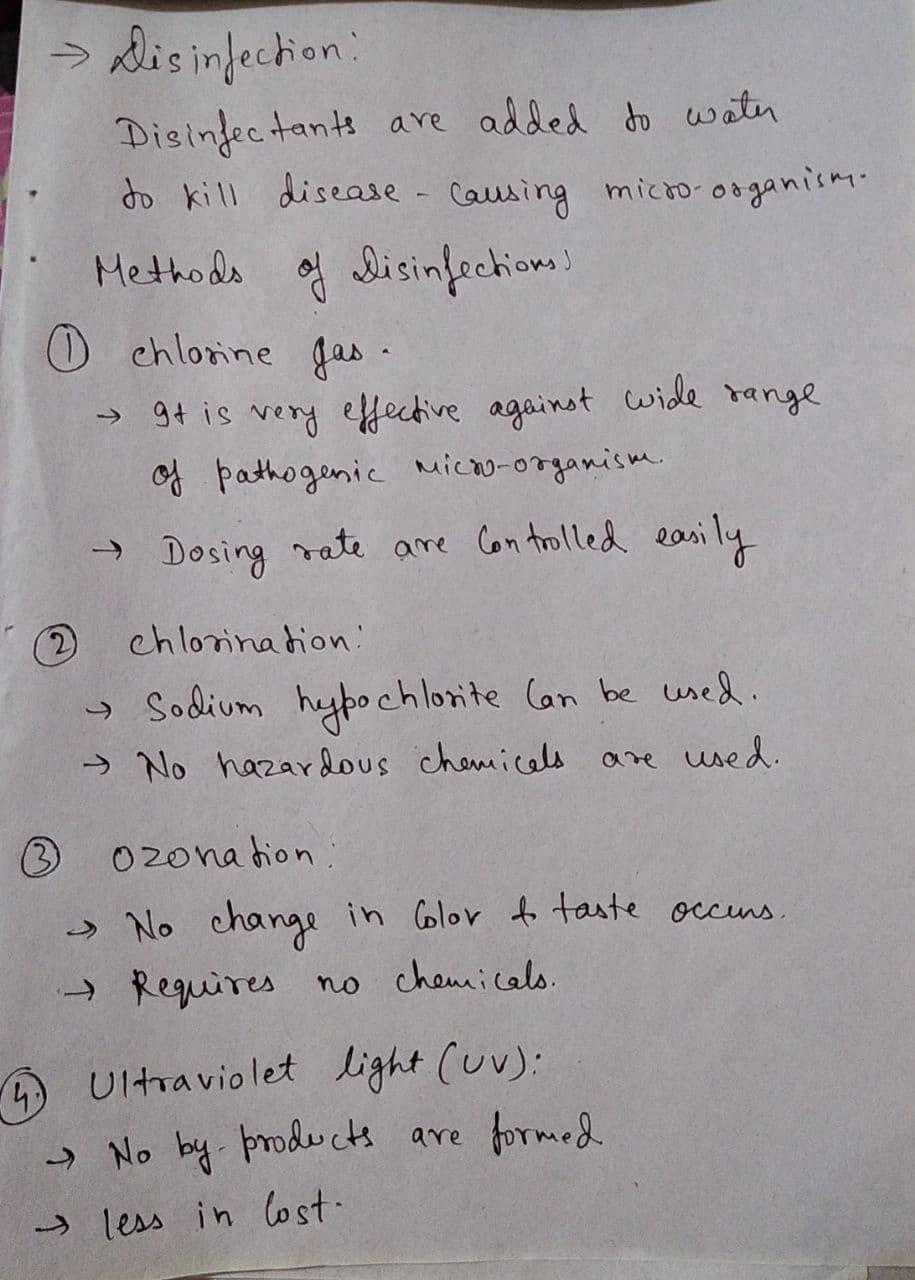 → Disinfection:
Disinfectants are added to water
to kill disease - causing micro-organism.
Methods of Disinfections:
① chlorine gas.
→ It is very effective against wide range
of pathogenic micro-organism.
→ Dosing rate are controlled easily
② chlorination:
→ Sodium hypochlorite can be used.
→ No hazardous chemicals are used.
③ ozonation:
→ No change in color & taste occurs.
→ Requires no chemicals.
④ Ultraviolet light (UV):
→ No by-products are formed
→ less in cost.